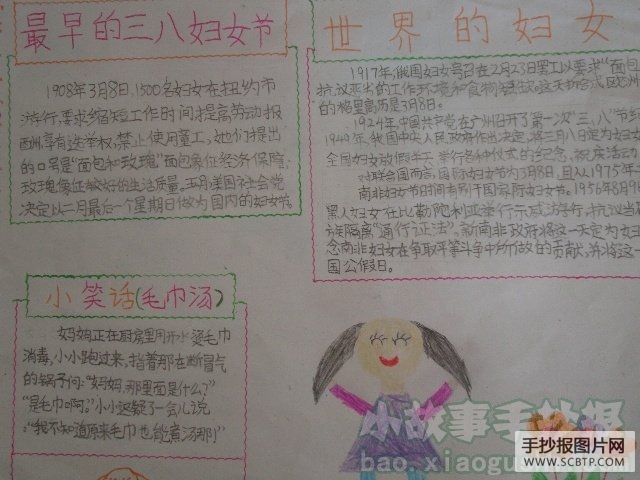 最早的三八妇女节
1908年3月8日,1500名妇女在纽约市
游行,要求缩短工作时间,提高劳动报
酬,享有选举权,禁止使用童工,她们提出
的口号是"面包和玫瑰"面包象征经济保障,
玫瑰象征较好的生活质量,五月,美国社会党
决定以二月最后一个星期日做为国内的妇女节。
世界的妇女
1917年,俄国妇女号召在2月23日罢工以要求"面包
抗议恶劣的工作环境和食物
的格里高历是3月8日。
1924年,中国共产党在广州召开了第一次"三、八"节
1949年,我国中央人民政府作出决定,将三月八日定为妇
全国妇女放假半天,举行各种仪式的纪念、祝庆活动
对联合国而言,国际妇女节为3月8日,且从1975年
南非妇女节时间有别于国际妇女节。1956年8月9
黑人妇女在比勒陀利亚举行示威游行,抗议当
误隔离"通行证法"。新南非政府将这一天定为妇
念南非妇女在争取平等斗争中所做的贡献,并将这一
国公假日。
小笑话(毛巾汤)
妈妈正在厨房里用开水烫毛巾
消毒,小小跑过来,指着那在断冒气
的锅子问:"妈妈,那里面是什么?"
"是毛巾啊。"小小迟疑了一会儿说
:"我不知道原来毛巾也能煮汤那!"
小故事手抄报
bao.xiaogu
手抄报图片网
WWW.SCBTP.COM